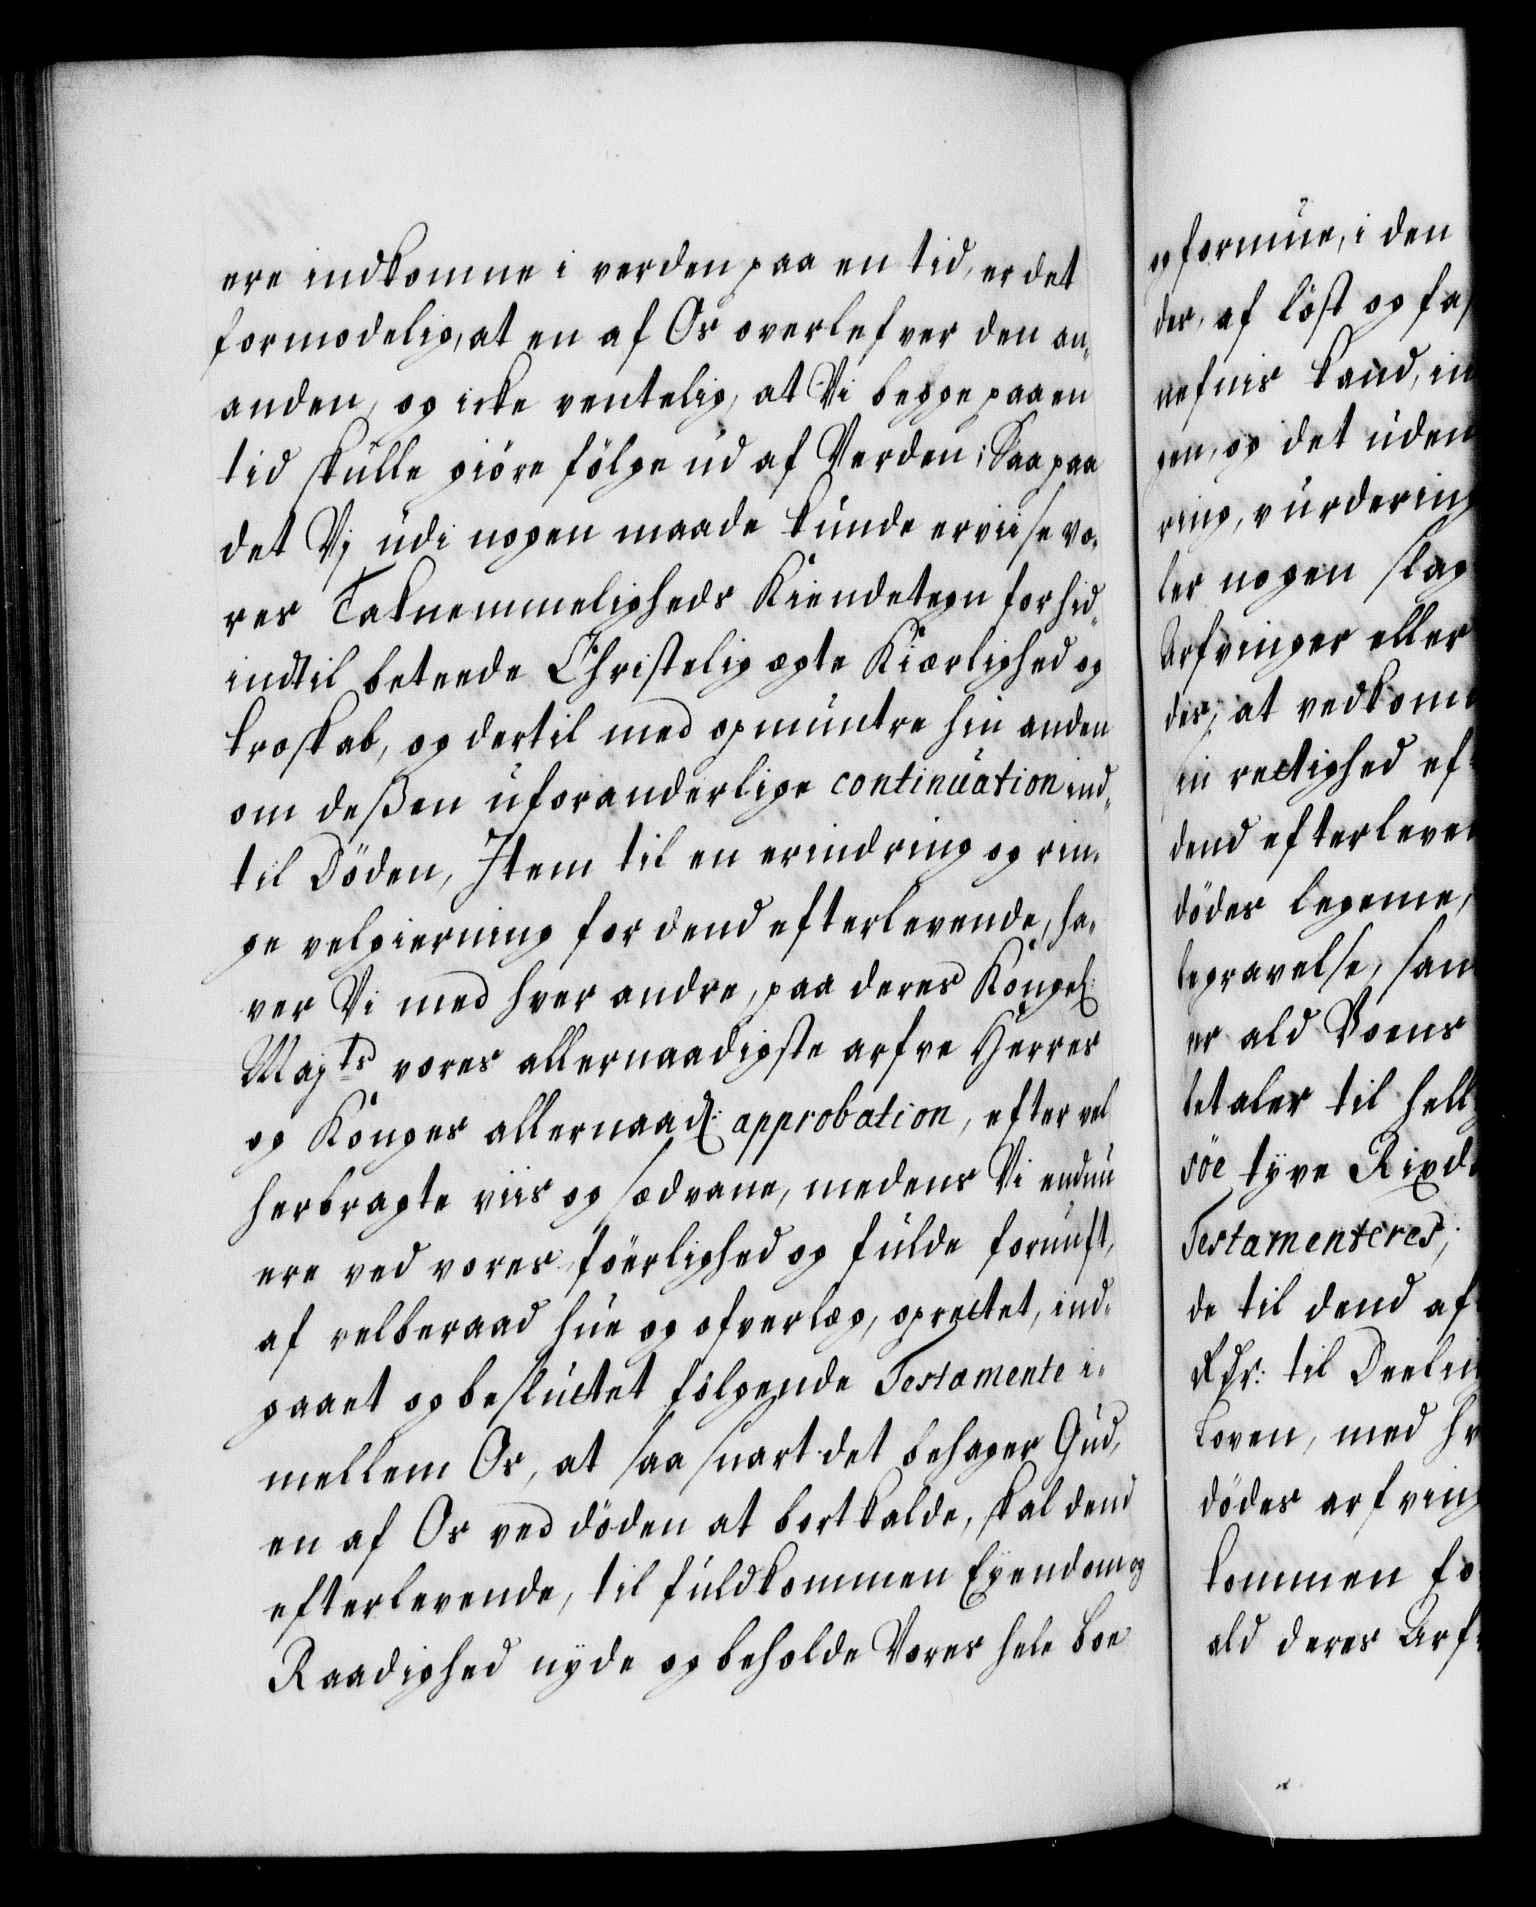 ere indkomne i verden paa en tid, er det
formodelig, at en af Os overlefver den an„
anden, og icke ventelig, at Vi begge paa en
tid skulle giöre fölge ud af Verden; Saa paa
det Vj udi nogen maade kunde erviise vo„
res Taknemmeligheds Kiendetegn for hid„
indtil beteede Christelig ægte Kiærlighed og
troskab, og dertil med opmuntre hin anden
om deßen uforanderlige continuation ind„
til Döden, Item til en erindring og rin„
ge velgierning for dend efterlevende, ha„
ver Vi med hver andre, paa deres Kongel:
Majts vores allernaadigste arfve Herres
og Konges allernaad: approbation, efter vel
herbragte viis og sædvane, medens Vi endnu
ere ved vores föerlighed og fulde fornuft,
af velberaad hue og ofverlæg, oprectet, ind„
gaaet og besluctet fölgende Testamente i„
mellem Os, at saa snart det behager Gud,
en af Os ved döden at bortkalde, skal dend
efterlevende, til fuldkommen Eyendom og
Raadighed nyde og beholde Vores hele Boe
og formue, i den
der, af löst og fas
nefnis kand, in
gen, og det uden
ring, vurdering
ler nogen slag
Arfvinger eller
des, at vedkom
sin rectighed ef
dend efterleven
dödes legeme,
begravelse, sam
er ald Voens
betaler til hell
söe tyve Rixd
Testamenteres,
de til dend af
Rdr: til Deelin
Loven, med hv
dödes arfving
kommen fo
ald deres Arf